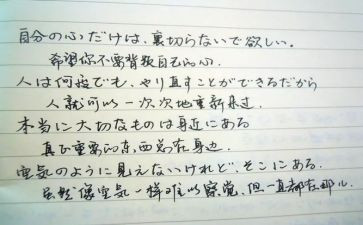 自分の心だけは、裏切らないで欲しい。
希望你不要背叛自己的心.
人は何度でも、やり直すことができるだから
人就可以一次次地重新来过.
本当に大切なものは身近にある
真正重要的东西总在身边.
空気のように見えないけれど、そこにある.
虽然像空气一样难以察觉,但一直都在那儿.